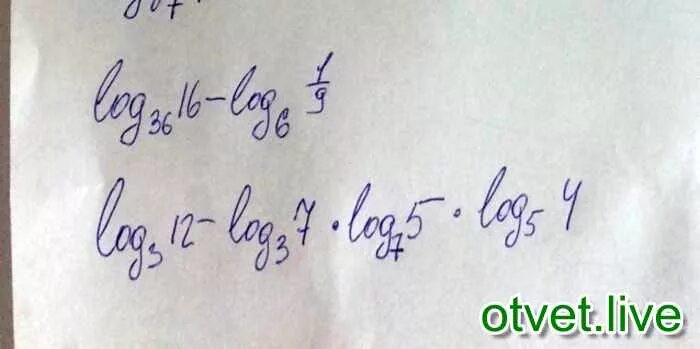 log₃₆16-log₆ 1/9
log₃12-log₃7·log₇5·log₅4
otvet.live